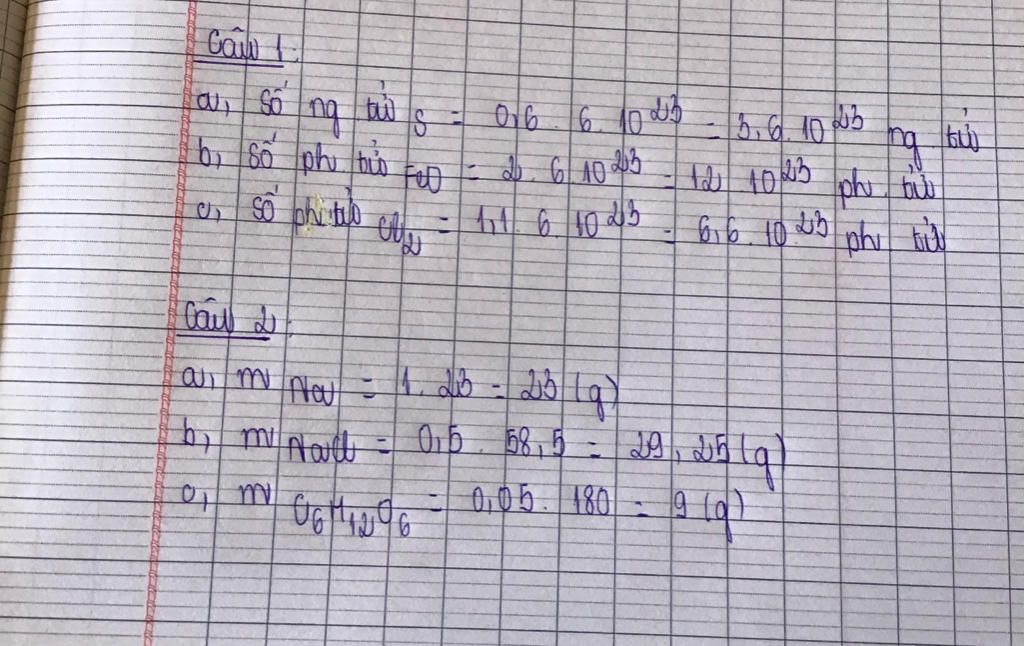 Câu 1:
a, số ng tử S = 0,6 . 6 . 10²³ = 3,6 . 10²³ ng tử
b, số ph tử FeO = 2 . 6 . 10²³ = 12 . 10²³ ph tử
c, số ph tử Cl₂ = 1,1 . 6 . 10²³ = 6,6 . 10²³ ph tử
Câu 2:
a, m Na = 1 . 23 = 23 (g)
b, m NaCl = 0,5 . 58,5 = 29,25 (g)
c, m C₆H₁₂O₆ = 0,05 . 180 = 9 (g)